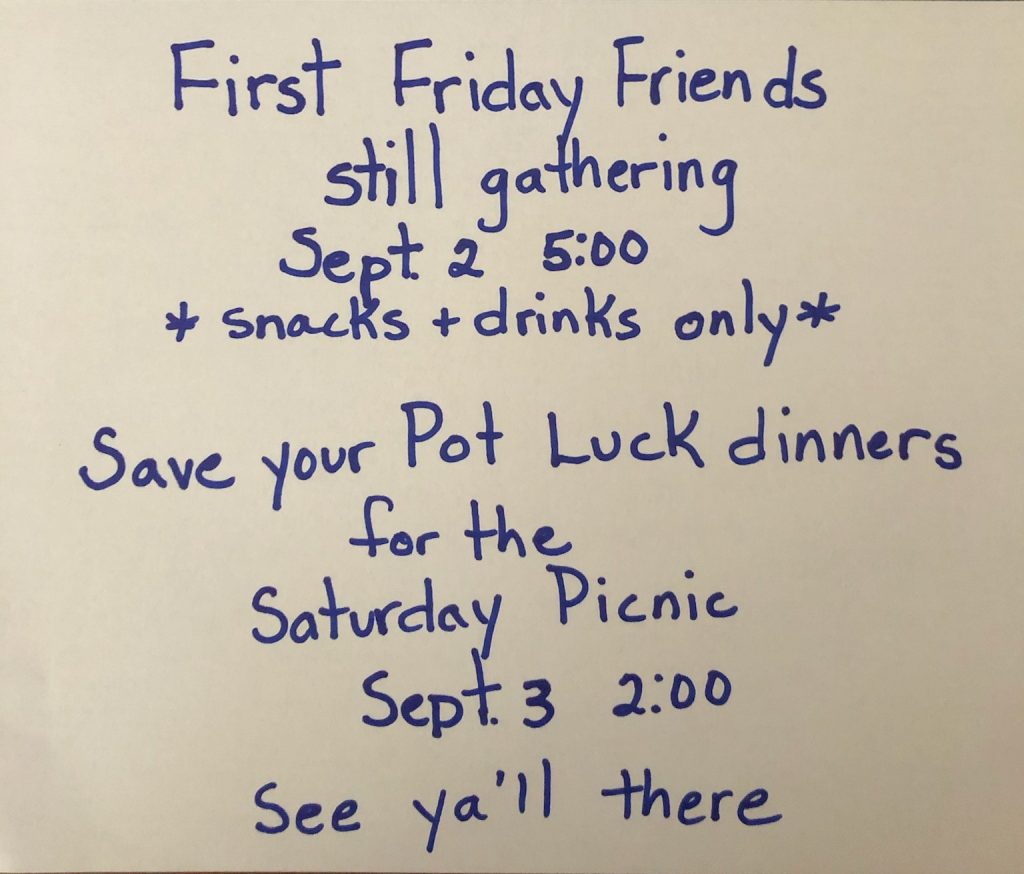 First Friday Friends
still gathering
Sept. 2 5:00
* snacks + drinks only *
Save your Pot Luck dinners
for the
Saturday Picnic
Sept. 3 2:00
See ya'll there